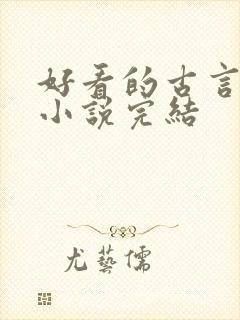 好看的古言
小說完結
尤藝儒